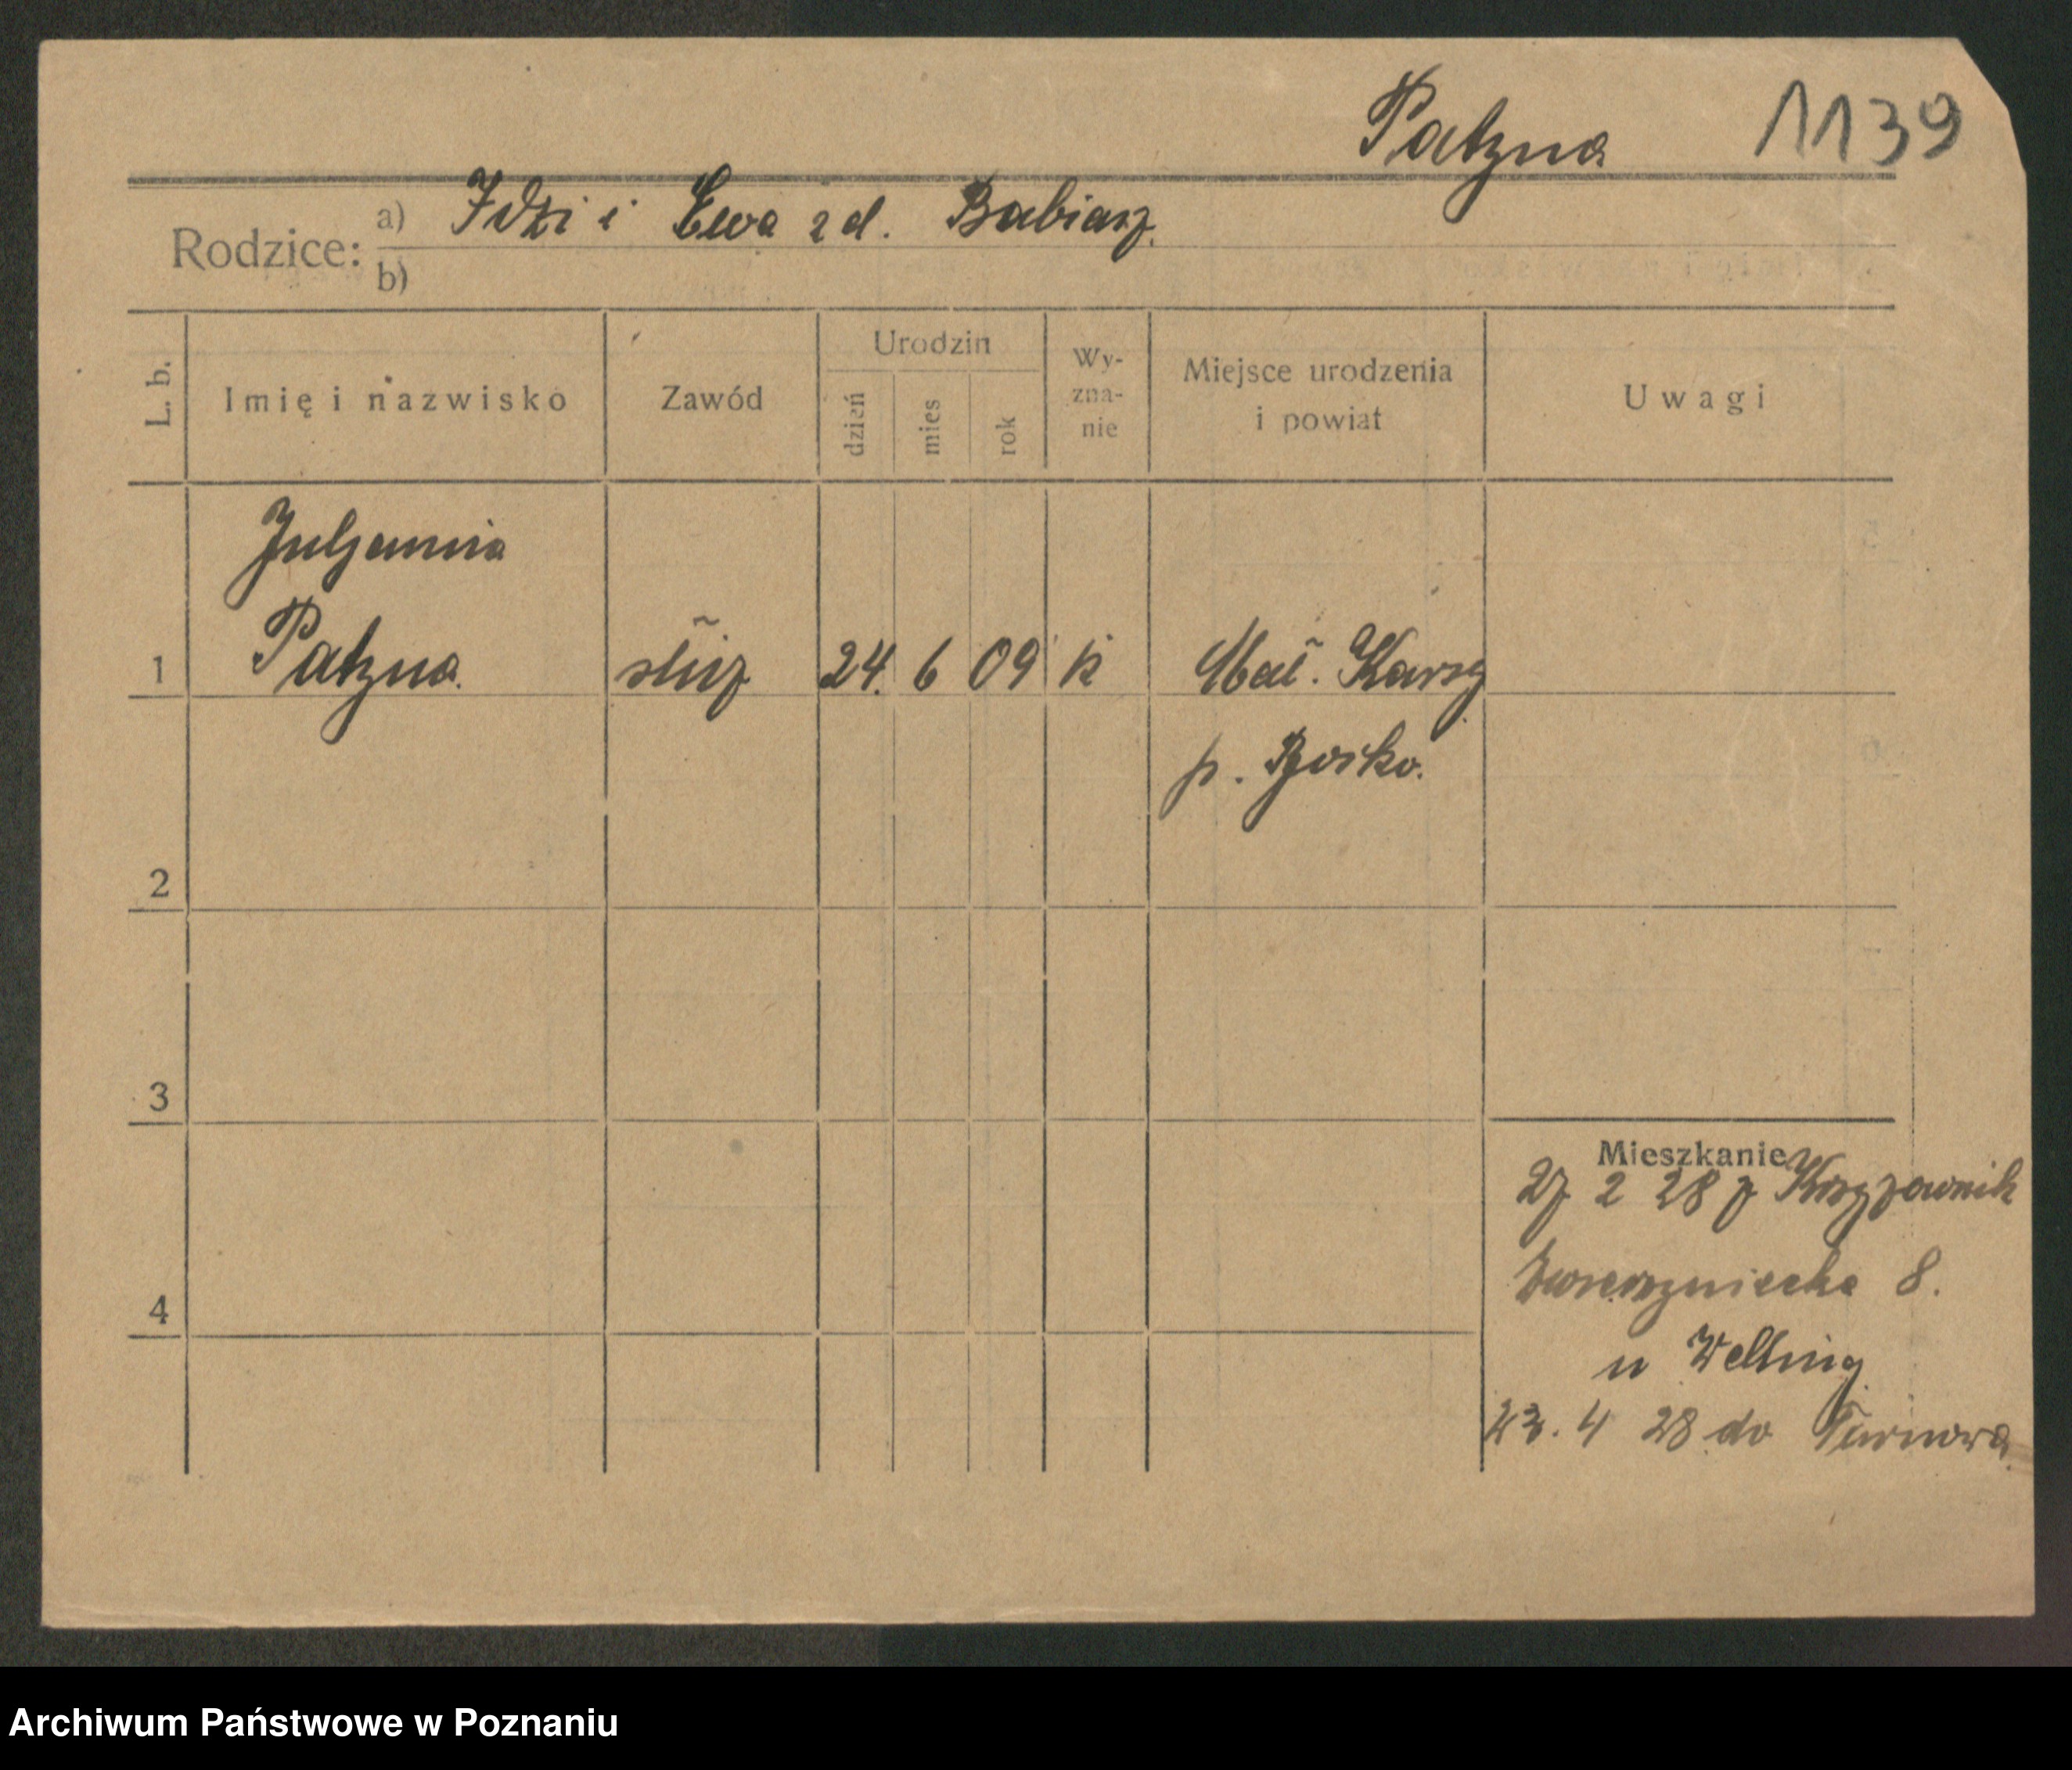 Patzna 1139
Rodzice: a) Idzi i Ewa z d. Babiarz
b)
L. b. Imię i nazwisko Zawód Urodzin dzień mies rok Wy-zna-nie Miejsce urodzenia i powiat Uwagi
Juljanna
1 Patzna służ 24. 6 09 k Mał. Karsy
p.
2
3
Mieszkanie
27 2 28 z Krzyżownik
4 Zwierzyniecka 8.
u Welling
23. 4 28 do Tarnowa
Archiwum Państwowe w Poznaniu